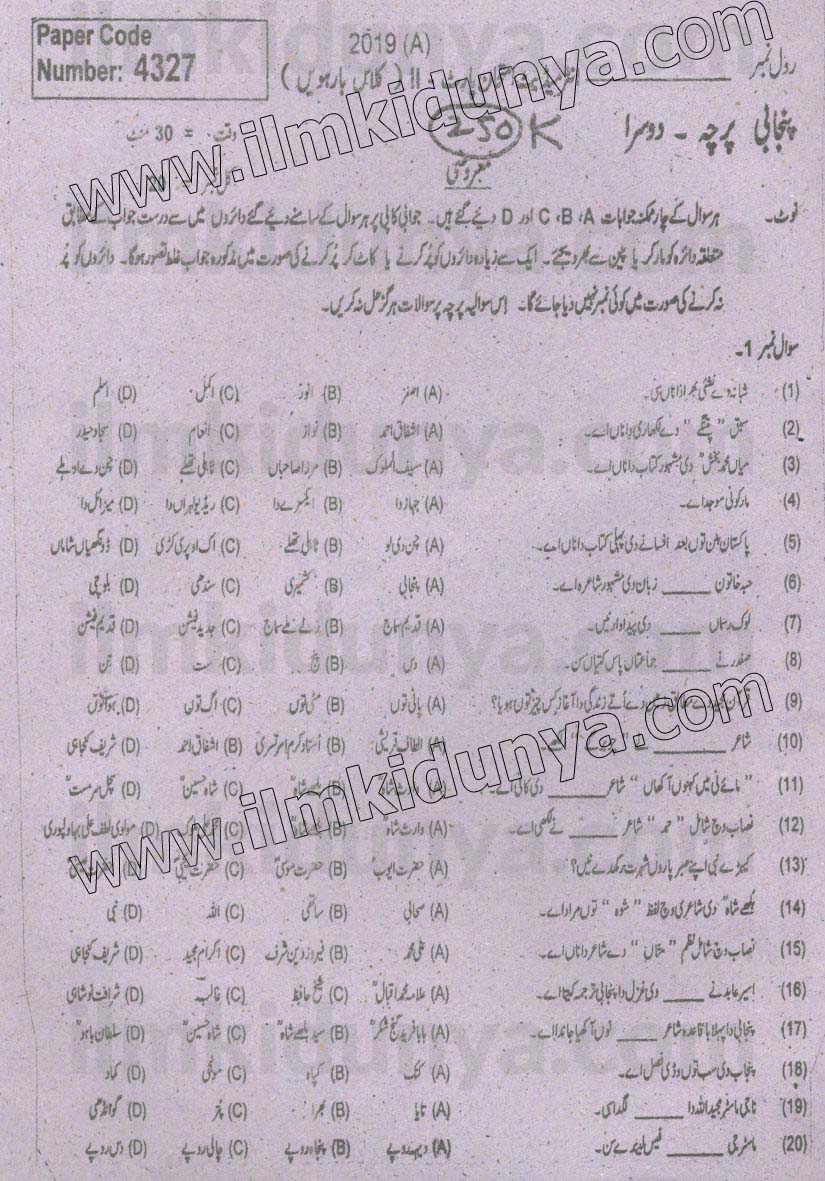 Paper Code
Number: 4327
2019 (A)
رول نمبر
پارٹ - II ( کلاس بارہویں )
www.ilmkidunya.com
پنجابی پرچہ - دوسرا
250 K
وقت = 30 منٹ
معروضی
نوٹ۔ ہر سوال کے چار ممکنہ جوابات C ،B ،A اور D دیئے گئے ہیں۔ جوابی کاپی پر ہر سوال کے سامنے دیئے گئے دائروں میں سے درست جواب کے مطابق
متعلقہ دائرہ کو مارکر یا پین سے بھر دیجئے۔ ایک سے زیادہ دائروں کو پُر کرنے یا کاٹ کر پُر کرنے کی صورت میں مذکورہ جواب غلط تصور ہوگا۔ دائروں کو پُر
نہ کرنے کی صورت میں کوئی نمبر نہیں دیا جائے گا۔ اِس سوالیہ پرچہ پر سوالات ہرگز حل نہ کریں۔
سوال نمبر 1۔
(1) شبانہ دے نشئی بھرا دا ناں سی۔ (A) اصغر (B) انور (C) اکمل (D) اسلم
(2) سبق " پتنگے " دے لکھاری دا ناں اے۔ (A) اشفاق احمد (B) نواز (C) انعام (D) سجاد حیدر
(3) میاں محمد بخشؒ دی مشہور کتاب دا ناں اے۔ (A) سیف الملوک (B) مرزا صاحباں (C) ٹاہلی تھلے (D) چن دے اوہلے
(4) مارکونی موجد اے۔ (A) جہاز دا (B) ایکسرے دا (C) ریڈیو لہراں دا (D) میزائل دا
(5) پاکستان بنن توں بعد افسانے دی پہلی کتاب دا ناں اے۔ (A) چن دی لو (B) ٹاہلی تھلے (C) اک اوپری کڑی (D) ڈونگھیاں شاماں
(6) حبہ خاتون _____ زبان دی مشہور شاعرہ اے۔ (A) پنجابی (B) کشمیری (C) سندھی (D) بلوچی
(7) لوک رسماں _____ دی پیداوار نیں۔ (A) قدیم سماج (B) رلے ملے سماج (C) جدید فیشن (D) قدیم فیشن
(8) صفدر نے _____ جماعتاں پاس کیتیاں سن۔ (A) دس (B) پنج (C) ست (D) تن
(9) دے اُتے زندگی دا آغاز کس چیز توں ہویا؟ (A) پانی توں (B) مٹی توں (C) اگ توں (D) ہوا توں
(10) شاعر _____ نے (A) الطاف قریشی (B) اُستاد کرم امرتسری (B) اشفاق احمد (D) شریف کنجاہی
(11) " مائے نی میں کہنوں آکھاں " شاعر _____ دی کافی اے۔ (A) وارث شاہؒ (B) بلھے شاہؒ (C) شاہ حسینؒ (D) سچل سرمستؒ
(12) نصاب وچ شامل " حمد " شاعر _____ نے لکھی اے۔ (A) وارث شاہؒ (D) مولوی لطف علی بہاولپوری
(13) کیہڑے نبی اپنے صبر پاروں شہرت رکھدے نیں؟ (A) حضرت ایوبؑ (B) حضرت موسیٰؑ (C) حضرت عیسیٰؑ
(14) بلھے شاہؒ دی شاعری وچ لفظ " شوہ " توں مراد اے۔ (A) صحابی (B) ساتھی (C) اللہ (D) نبی
(15) نصاب وچ شامل نظم " متاں " دے شاعر دا ناں اے۔ (A) علی محمد (B) فیروز دین شرف (C) اکرام مجید (D) شریف کنجاہی
(16) اسیر عابد نے _____ دی غزل دا پنجابی ترجمہ کیتا اے۔ (A) علامہ محمد اقبالؒ (C) شیخ حافظ (C) غالب (D) شرافت نوشاہی
(17) پنجابی دا پہلا باقاعدہ شاعر _____ نوں آکھیا جاندا اے۔ (A) بابا فرید گنج شکرؒ (B) سید بلھے شاہؒ (C) شاہ حسینؒ (D) سلطان باہوؒ
(18) پنجاب دی سب توں وڈی فصل اے۔ (A) کنک (B) کپاہ (C) مونجی (D) کماد
(19) ناجی ماسٹر مجید اللہ دا _____ لگدا سی۔ (A) تایا (B) بھرا (C) پتر (D) گوانڈھی
(20) ماسٹر جی _____ فیس لیندے سن۔ (A) ویہہ روپے (B) پنجاہ روپے (C) چالی روپے (D) دس روپے